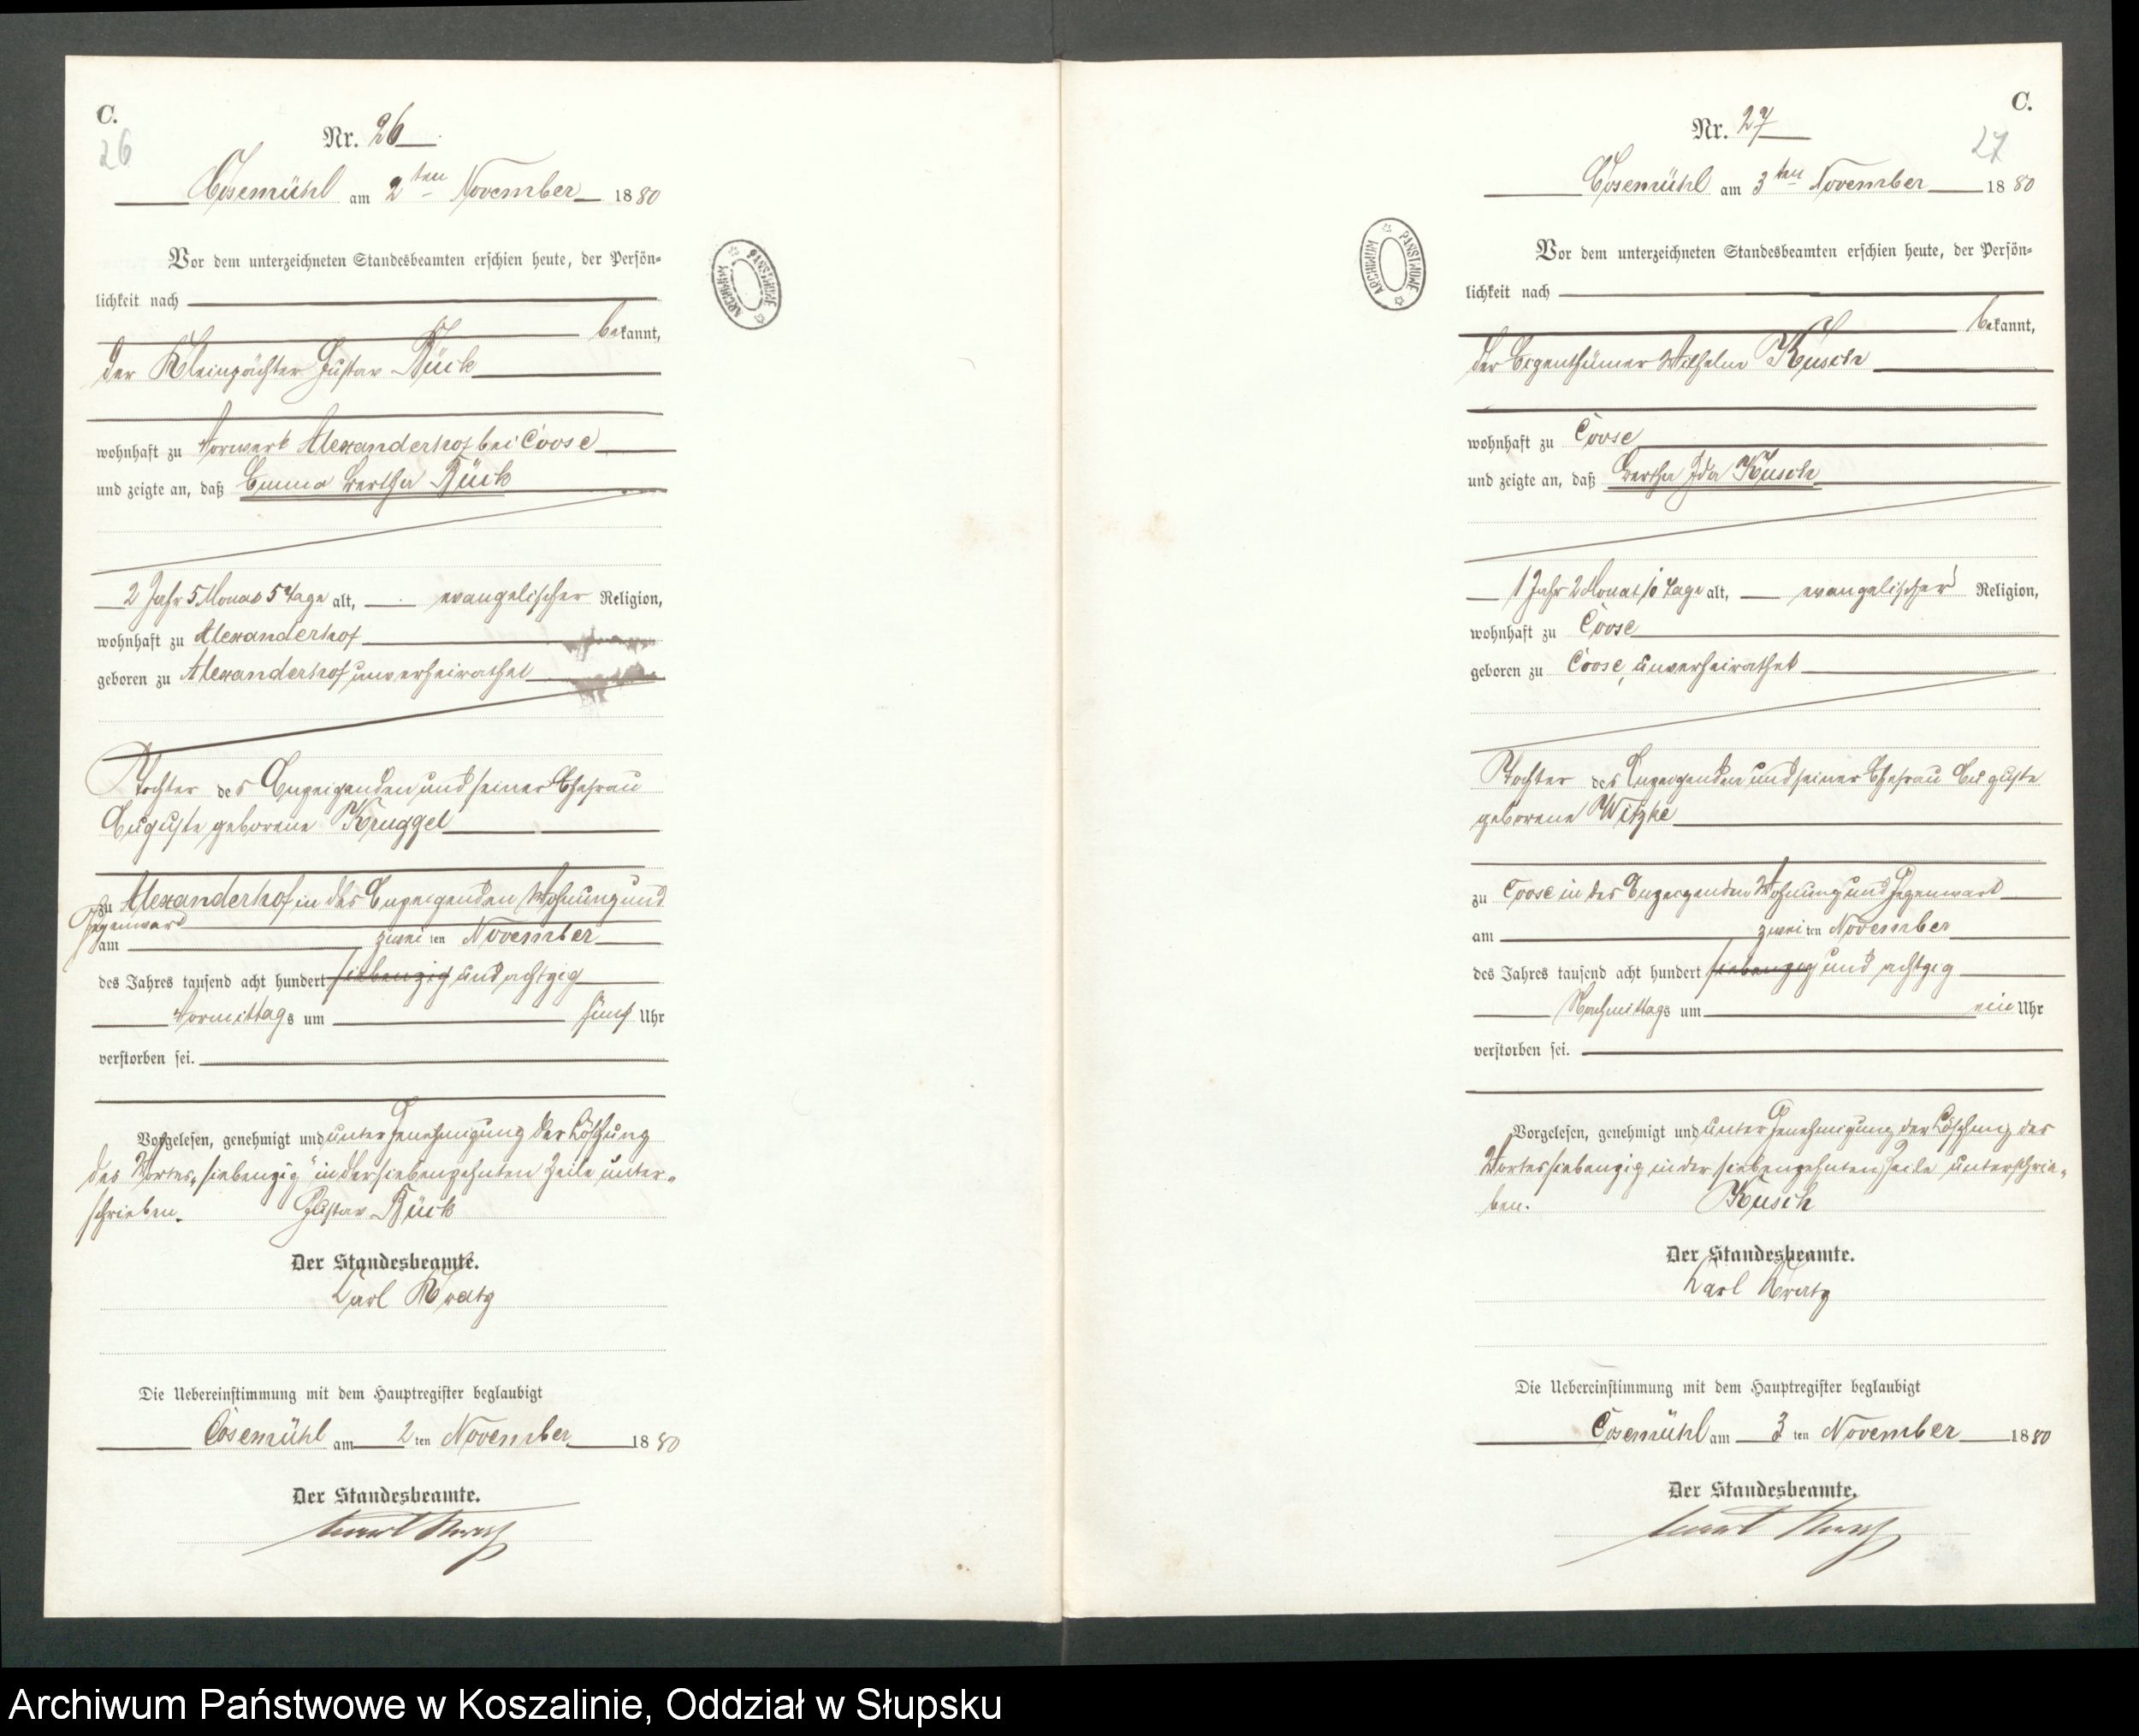 C.
26
Nr. 26
Cosemühl am 2ten November 1880
Vor dem unterzeichneten Standesbeamten erschien heute, der Persön-
lichkeit nach
bekannt,
der Kleinpächter Gustav Rück
wohnhaft zu Vorwerk Alexanderhof bei Coose
und zeigte an, daß Emma Bertha Rück
2 Jahr 5 Monat 5 Tage alt, evangelischer Religion,
wohnhaft zu Alexanderhof
geboren zu Alexanderhof, unverheirathet
Tochter des Anzeigenden und seiner Ehefrau
Auguste geborene Kruggel
zu Alexanderhof in des Anzeigenden Wohnung und
Gegenwart
am zweiten November
des Jahres tausend acht hundert siebenzig und achtzig
Vormittags um fünf Uhr
verstorben sei.
Vorgelesen, genehmigt und unter Genehmigung der Löschung
des Wortes „siebenzig“ in der siebenzehnten Zeile unter-
schrieben. Gustav Rück
Der Standesbeamte.
Karl Kratz
Die Uebereinstimmung mit dem Hauptregister beglaubigt
Cosemühl am 2ten November 1880
Der Standesbeamte.
ARCHIWUM PAŃSTWOWE
C.
27
Nr. 27
Cosemühl am 3ten November 1880
Vor dem unterzeichneten Standesbeamten erschien heute, der Persön-
lichkeit nach
bekannt,
der Eigenthümer Wilhelm Kusch
wohnhaft zu Coose
und zeigte an, daß Bertha Ida Kusch
1 Jahr 2 Monat 10 Tage alt, evangelischer Religion,
wohnhaft zu Coose
geboren zu Coose, unverheirathet
Tochter des Anzeigenden und seiner Ehefrau Auguste
geborene Witzke
zu Coose in des Anzeigenden Wohnung und Gegenwart
am zweiten November
des Jahres tausend acht hundert siebenzig und achtzig
Nachmittags um ein Uhr
verstorben sei.
Vorgelesen, genehmigt und unter Genehmigung der Löschung des
Wortes siebenzig in der siebenzehnten Zeile unterschrie-
ben. Kusch
Der Standesbeamte.
Karl Kratz
Die Uebereinstimmung mit dem Hauptregister beglaubigt
Cosemühl am 3ten November 1880
Der Standesbeamte.
ARCHIWUM PAŃSTWOWE
Archiwum Państwowe w Koszalinie, Oddział w Słupsku